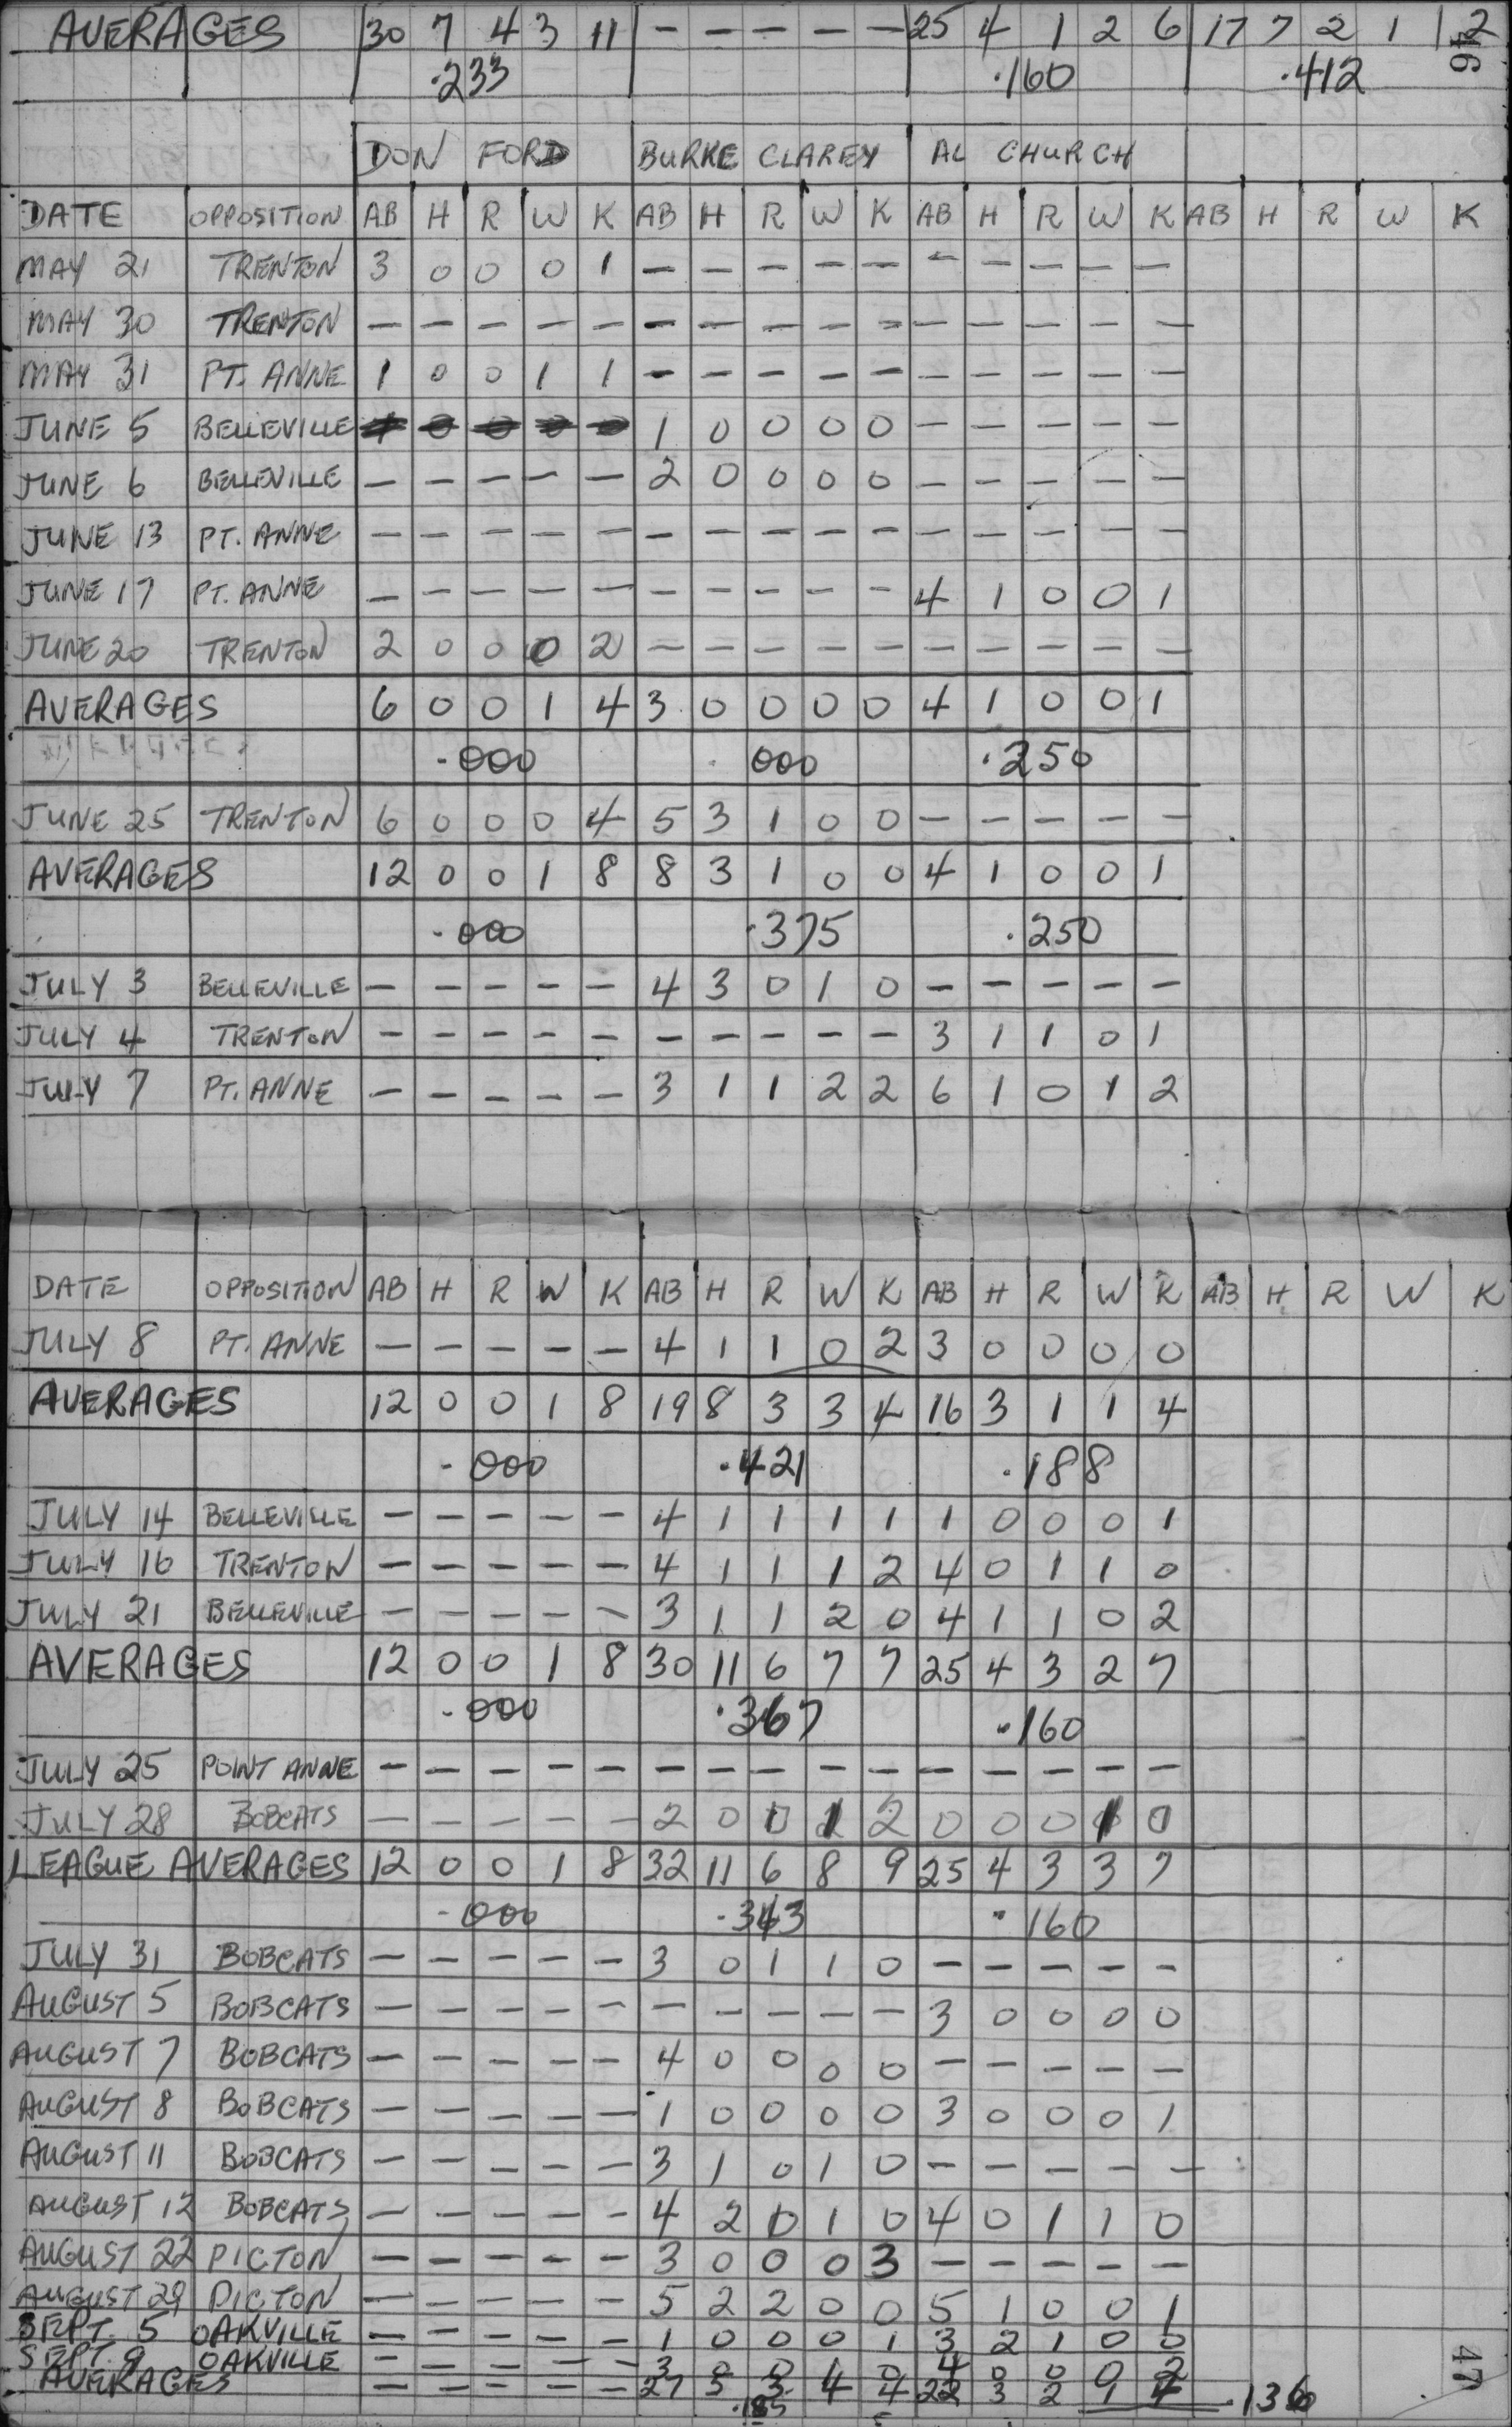 AVERAGES 30 7 4 3 11 - - - - - 25 4 1 2 6 17 7 2 1 2
.233 .160 .412
46
DON FORD BURKE CLAREY AL CHURCH
DATE OPPOSITION AB H R W K AB H R W K AB H R W K AB H R W K
MAY 21 TRENTON 3 0 0 0 1 - - - - - - - - - -
MAY 30 TRENTON - - - - - - - - - - - - - - -
MAY 31 PT. ANNE 1 0 0 1 1 - - - - - - - - - -
JUNE 5 BELLEVILLE 1 0 0 0 0 - - - - -
JUNE 6 BELLEVILLE - - - - - 2 0 0 0 0 - - - - -
JUNE 13 PT. ANNE - - - - - - - - - - - - - - -
JUNE 17 PT. ANNE - - - - - - - - - - 4 1 0 0 1
JUNE 20 TRENTON 2 0 0 0 2 - - - - - - - - - -
AVERAGES 6 0 0 1 4 3 0 0 0 0 4 1 0 0 1
.000 .000 .250
JUNE 25 TRENTON 6 0 0 0 4 5 3 1 0 0 - - - - -
AVERAGES 12 0 0 1 8 8 3 1 0 0 4 1 0 0 1
.000 .375 .250
JULY 3 BELLEVILLE - - - - - 4 3 0 1 0 - - - - -
JULY 4 TRENTON - - - - - - - - - - 3 1 1 0 1
JULY 7 PT. ANNE - - - - - 3 1 1 2 2 6 1 0 1 2
DATE OPPOSITION AB H R W K AB H R W K AB H R W K AB H R W K
JULY 8 PT. ANNE - - - - - 4 1 1 0 2 3 0 0 0 0
AVERAGES 12 0 0 1 8 19 8 3 3 4 16 3 1 1 4
.000 .421 .188
JULY 14 BELLEVILLE - - - - - 4 1 1 1 1 1 0 0 0 1
JULY 16 TRENTON - - - - - 4 1 1 1 2 4 0 1 1 0
JULY 21 BELLEVILLE - - - - - 3 1 1 2 0 4 1 1 0 2
AVERAGES 12 0 0 1 8 30 11 6 7 7 25 4 3 2 7
.000 .367 .160
JULY 25 POINT ANNE - - - - - - - - - - - - - - -
JULY 28 BOBCATS - - - - - 2 0 0 1 2 0 0 0 1 0
LEAGUE AVERAGES 12 0 0 1 8 32 11 6 8 9 25 4 3 3 7
.000 .343 .160
JULY 31 BOBCATS - - - - - 3 0 1 1 0 - - - - -
AUGUST 5 BOBCATS - - - - - - - - - - 3 0 0 0 0
AUGUST 7 BOBCATS - - - - - 4 0 0 0 0 - - - - -
AUGUST 8 BOBCATS - - - - - 1 0 0 0 0 3 0 0 0 1
AUGUST 11 BOBCATS - - - - - 3 1 0 1 0 - - - - -
AUGUST 12 BOBCATS - - - - - 4 2 0 1 0 4 0 1 1 0
AUGUST 22 PICTON - - - - - 3 0 0 0 3 - - - - -
AUGUST 29 PICTON - - - - - 5 2 2 0 0 5 1 0 0 1
SEPT. 5 OAKVILLE - - - - - 1 0 0 0 1 3 2 1 0 0
SEPT. 9 OAKVILLE - - - - - 3 0 0 1 0 4 0 0 0 2
AVERAGES - - - - - 27 5 3 4 4 22 3 2 1 4 .136
.185
47